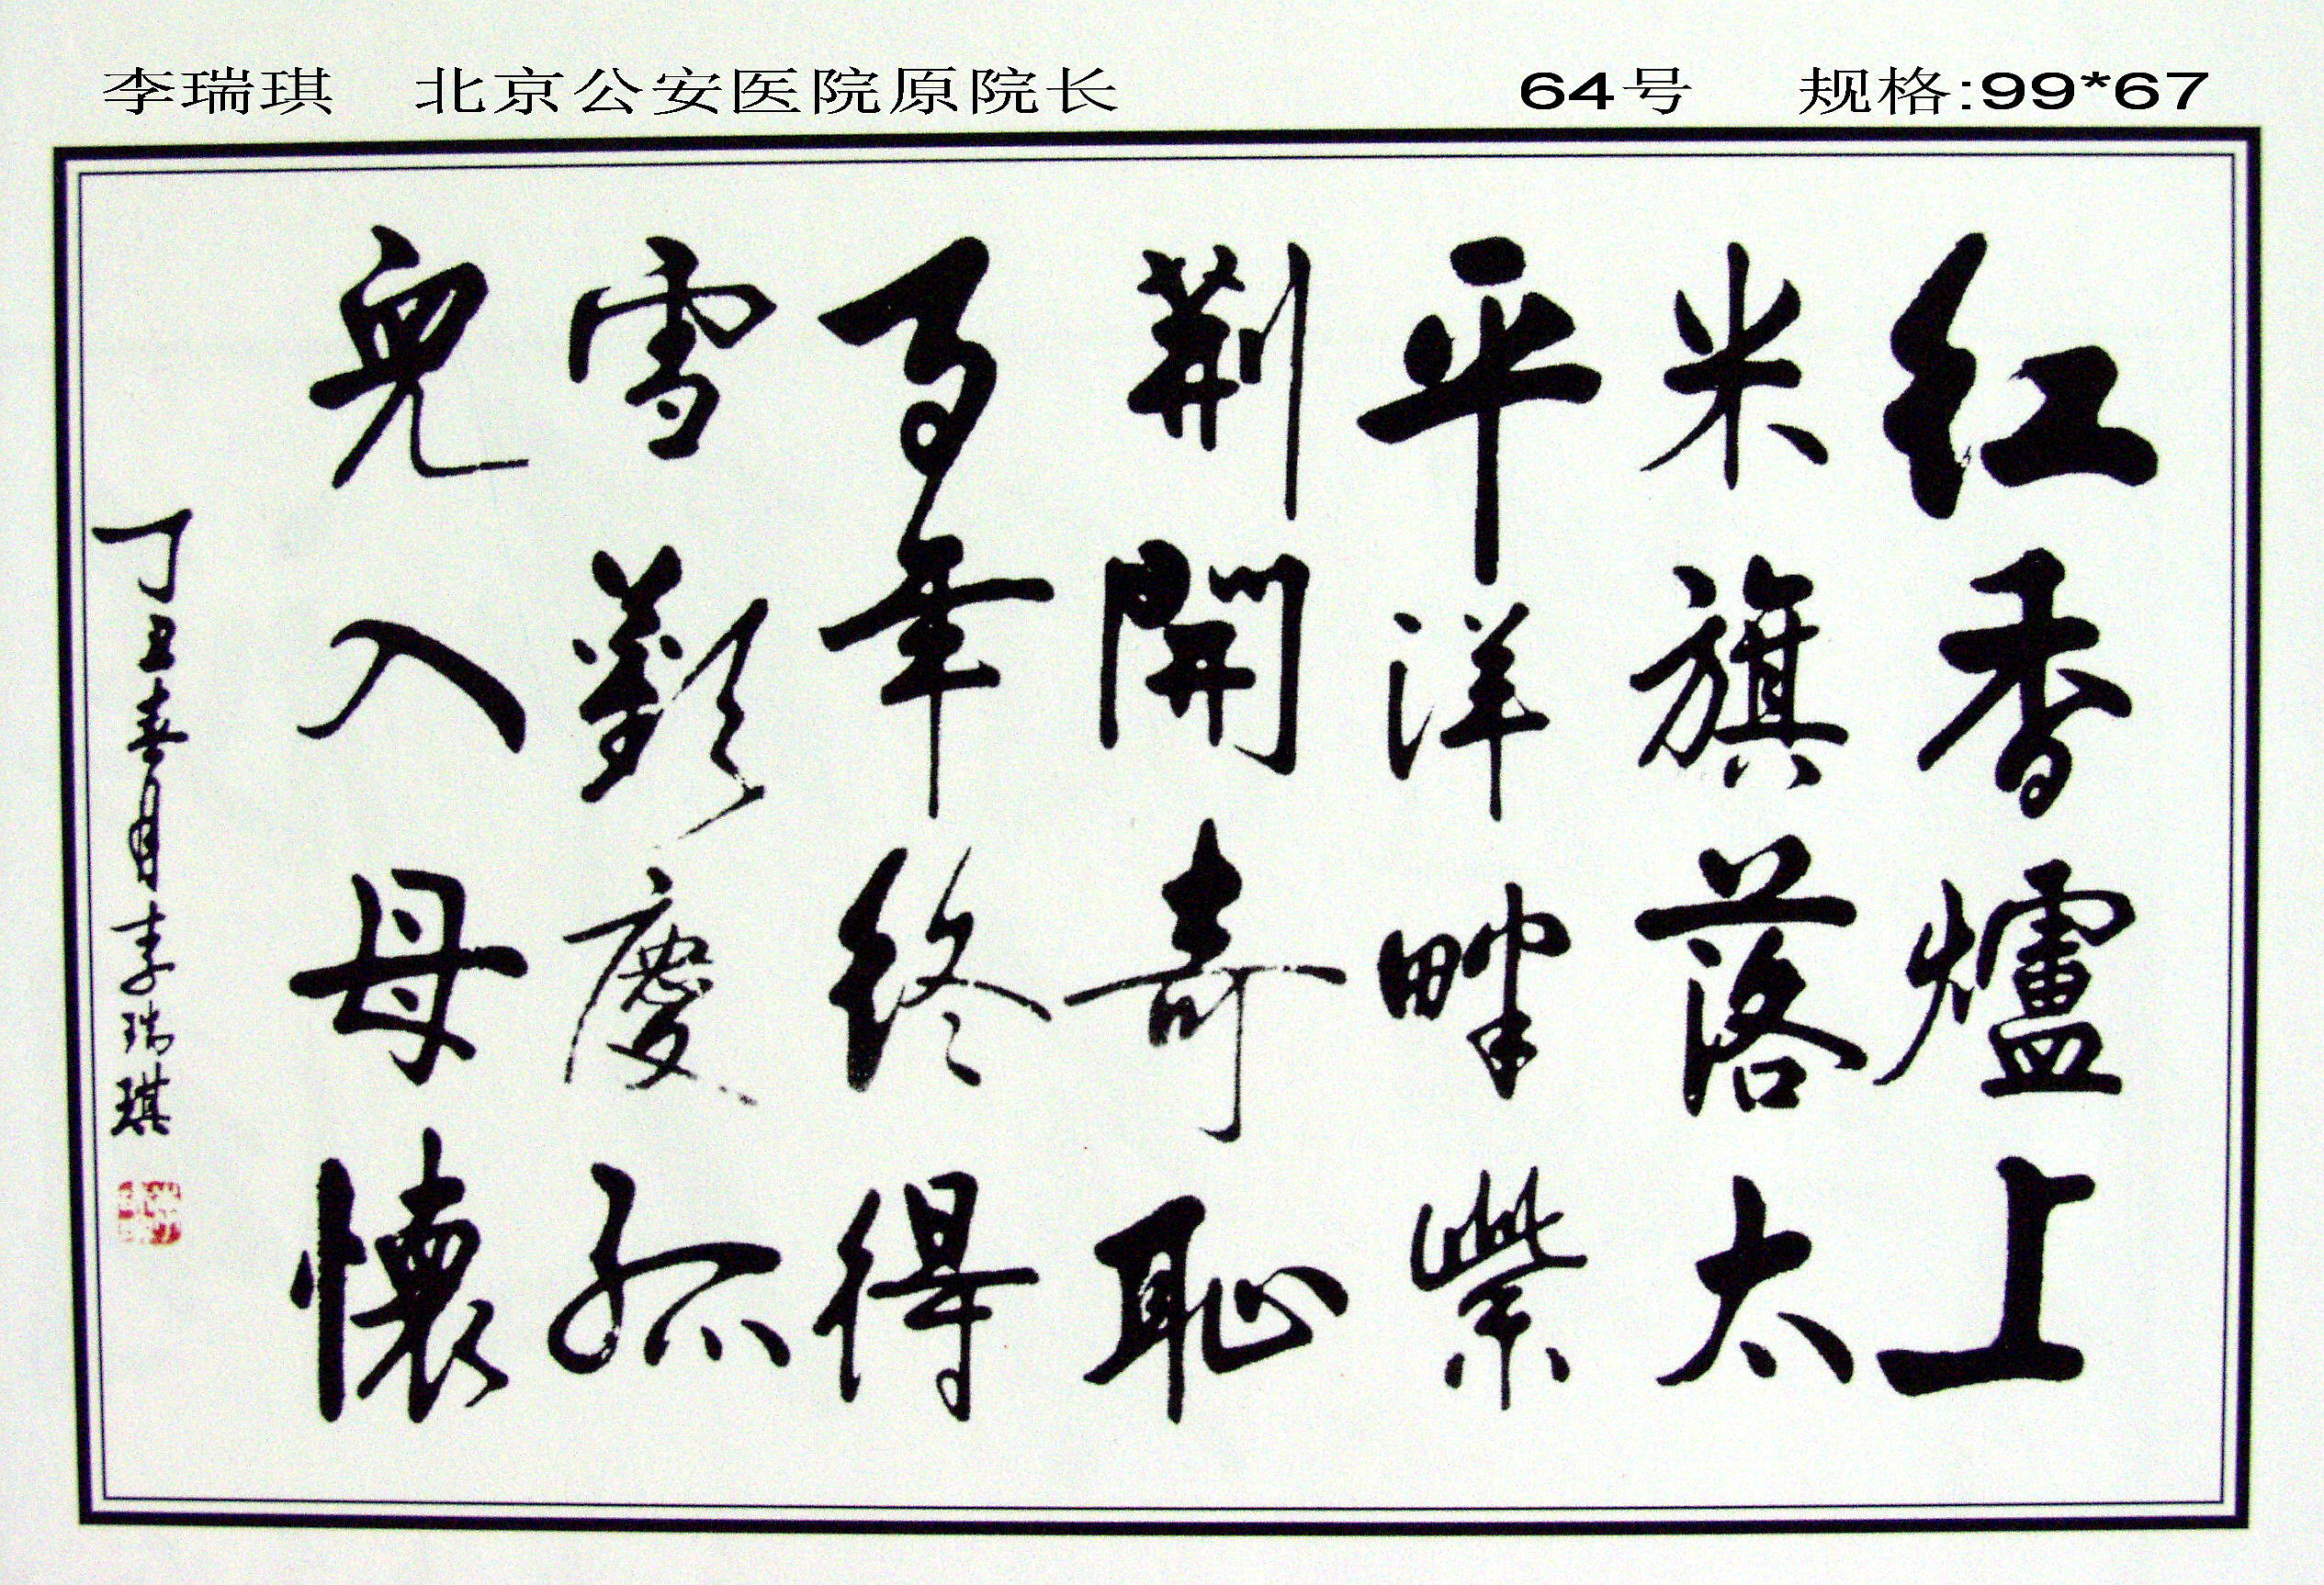 李瑞琪 北京公安医院原院长 64号 规格:99*67
紅香爐上
米旗落太
平洋畔紫
荆開奇恥
百年終得
雪歡慶孤
兒入母懷
丁丑春月李瑞琪